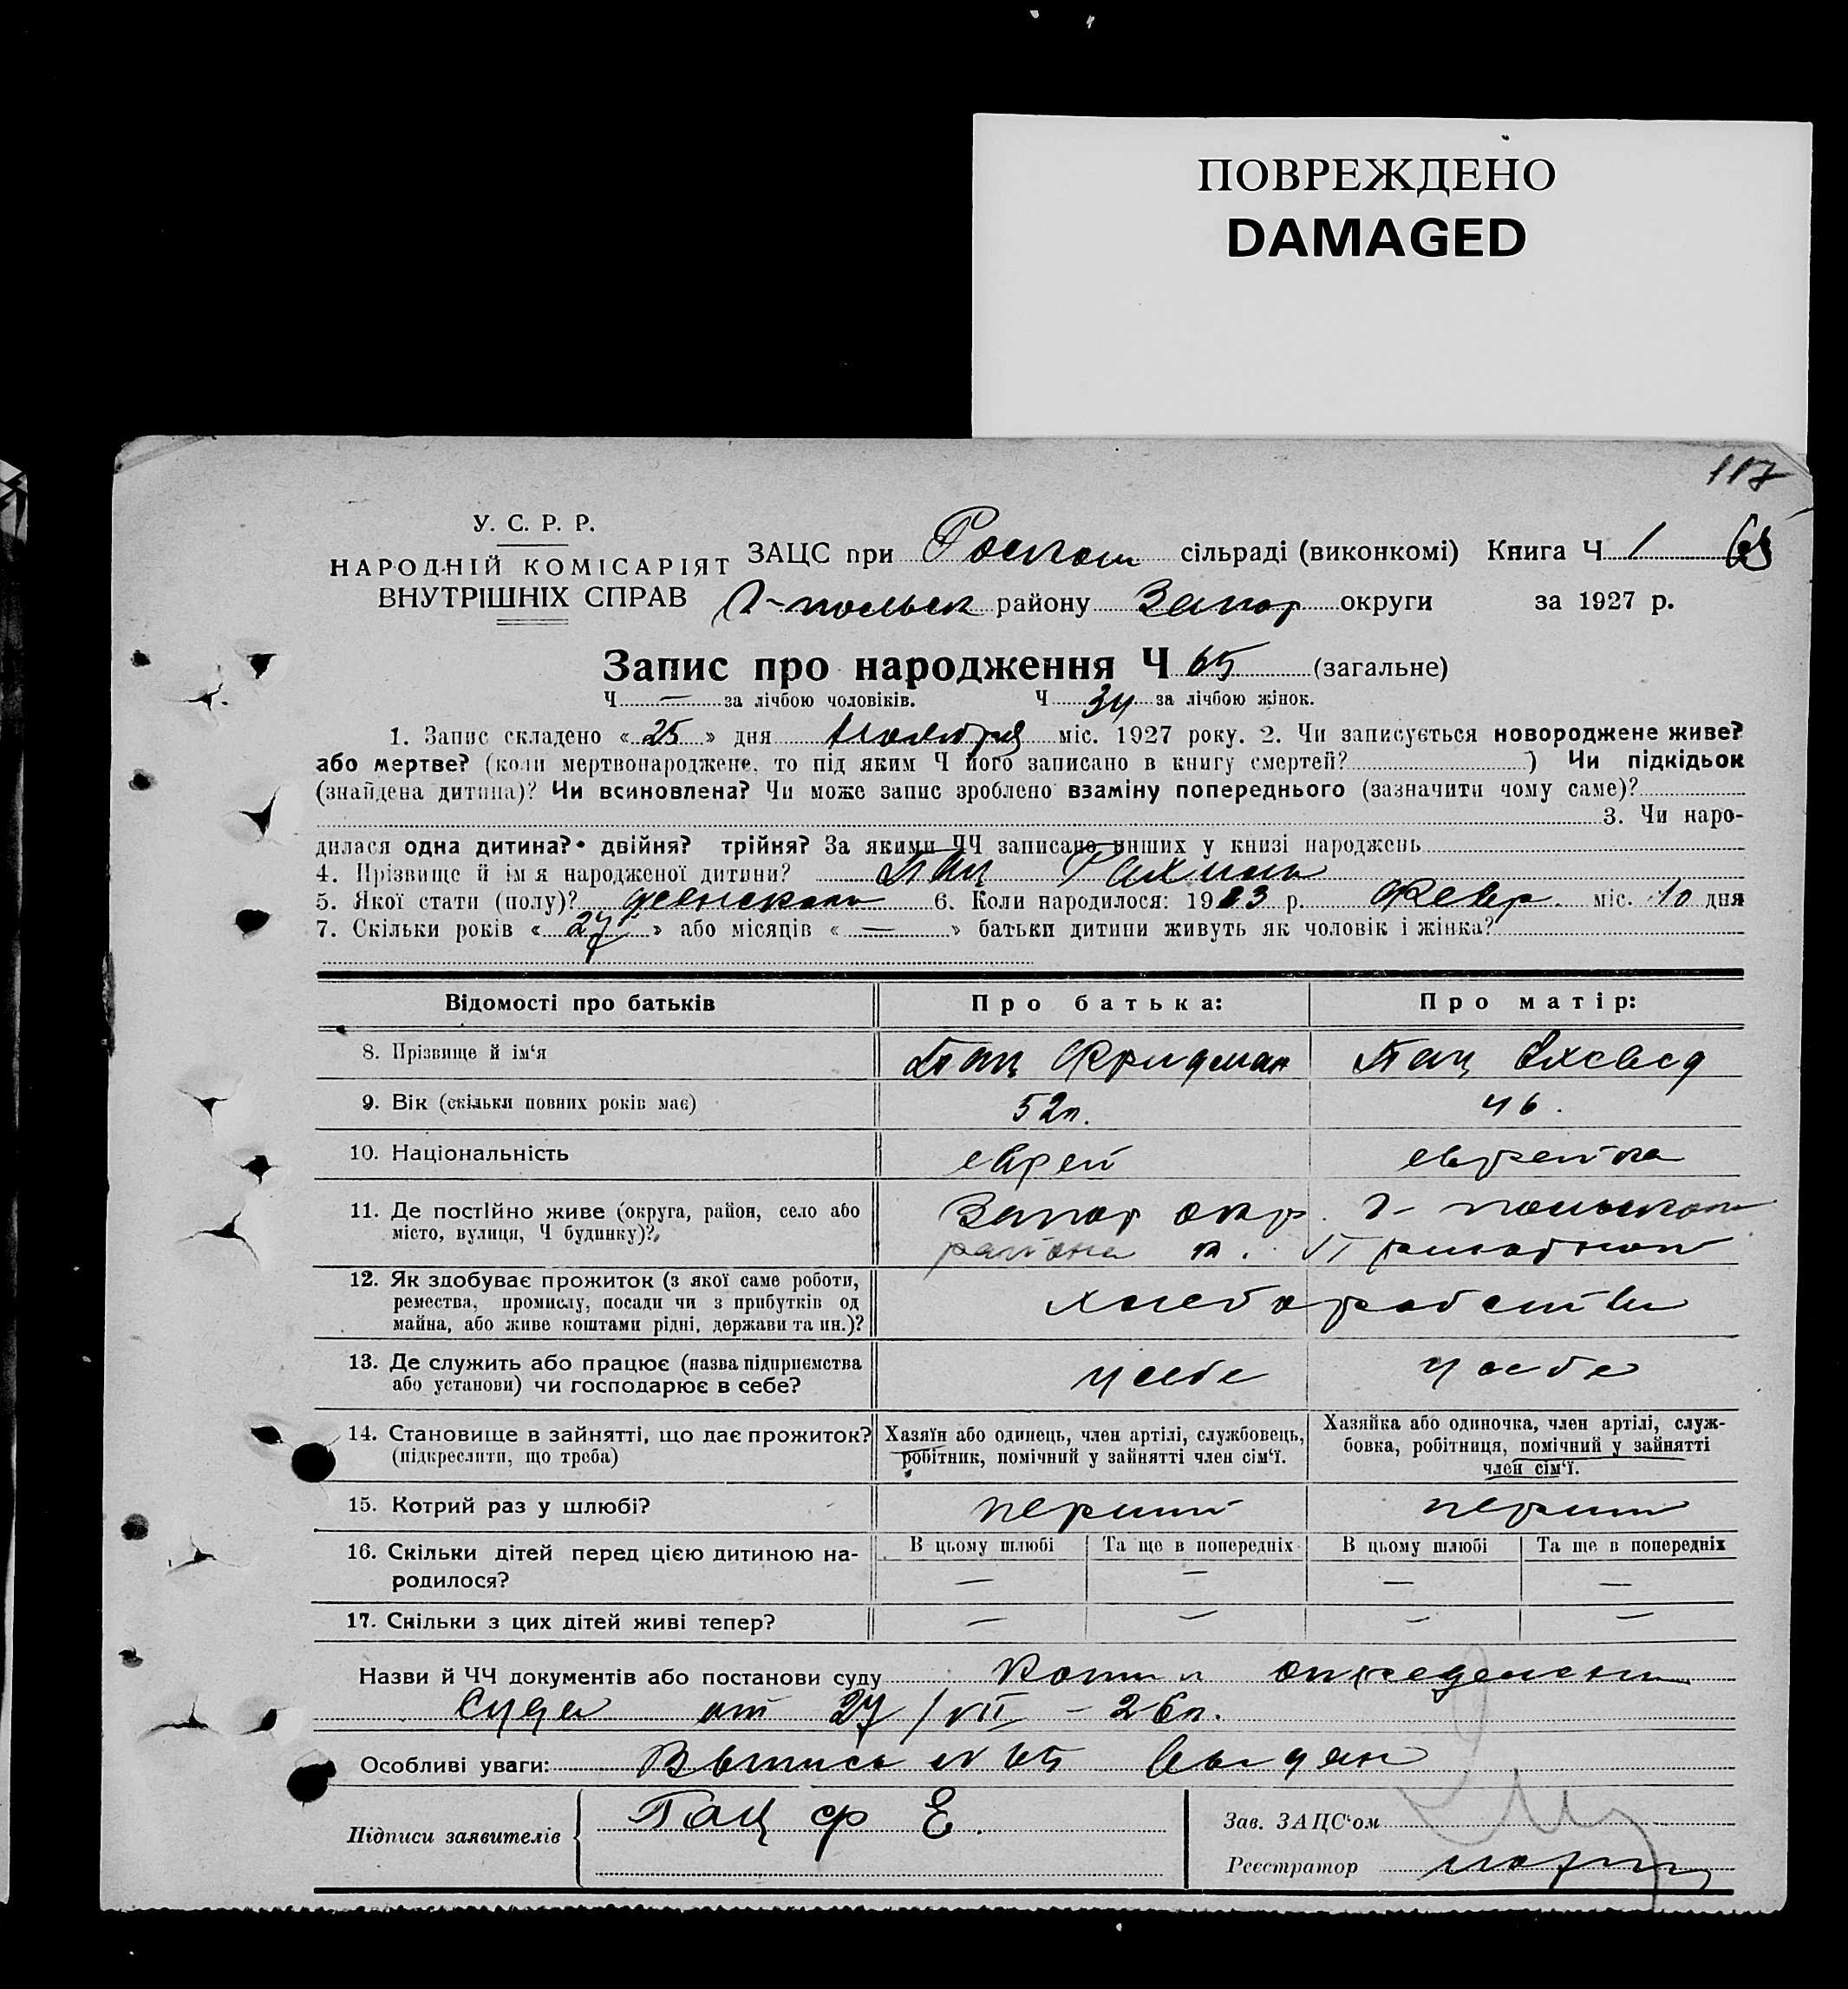 ПОВРЕЖДЕНО
DAMAGED
117
У. С. Р. Р.
НАРОДНІЙ КОМІСАРІЯТ
ВНУТРІШНІХ СПРАВ
ЗАЦС при сільраді (виконкомі) Книга Ч 1 65
району Запор округи за 1927 р.
Запис про народження Ч 65 (загальне)
Ч — за лічбою чоловіків. Ч 34 за лічбою жінок.
1. Запис складено « 25 » дня ноября міс. 1927 року. 2. Чи записується новороджене живе?
або мертве? (коли мертвонароджене, то під яким Ч його записано в книгу смертей? ) Чи підкідьок
(знайдена дитина)? Чи всиновлена? Чи може запис зроблено взаміну попереднього (зазначити чому саме)?
3. Чи наро-
дилася одна дитина? двійня? трійня? За якими ЧЧ записано инших у книзі народжень
4. Прізвище й імя народженої дитини? Пац Рахиль
5. Якої стати (полу)? женского 6. Коли народилося: 1913 р. Февр. міс. 10 дня
7. Скільки років « 27 » або місяців « — » батьки дитини живуть як чоловік і жінка?
Відомості про батьків Про батька: Про матір:
8. Прізвище й ім'я Пац Фридман Пац
9. Вік (скільки повних років має) 52л. 46.
10. Національність еврей еврейка
11. Де постійно живе (округа, район, село або
місто, вулиця, Ч будинку)? Запор окр.
района
12. Як здобуває прожиток (з якої саме роботи,
ремества, промислу, посади чи з прибутків од
майна, або живе коштами рідні, держави та ин.)?
13. Де служить або працює (назва підприємства
або установи) чи господарює в себе? у себе у себе
14. Становище в зайнятті, що дає прожиток?
(підкреслити, що треба)
Хазяїн або одинець, член артілі, службовець,
робітник, помічний у зайнятті член сім'ї.
Хазяйка або одиночка, член артілі, служ-
бовка, робітниця, помічний у зайнятті
член сім'ї.
15. Котрий раз у шлюбі? первый первый
16. Скільки дітей перед цією дитиною на-
родилося?
В цьому шлюбі Та ще в попередніх В цьому шлюбі Та ще в попередніх
— — — —
17. Скільки з цих дітей живі тепер? — — — —
Назви й ЧЧ документів або постанови суду Копия определения
Суда от 27/VII – 26г.
Особливі уваги: Выпись № 65 выдан
Підписи заявителів Пац Ф Е.
Зав. ЗАЦС'ом
Реєстратор